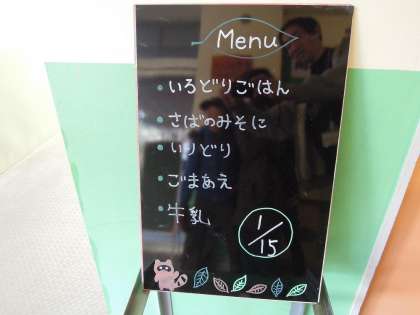 Menu
いろどりごはん
さばのみそに
いりどり
ごまあえ
牛乳
1/15